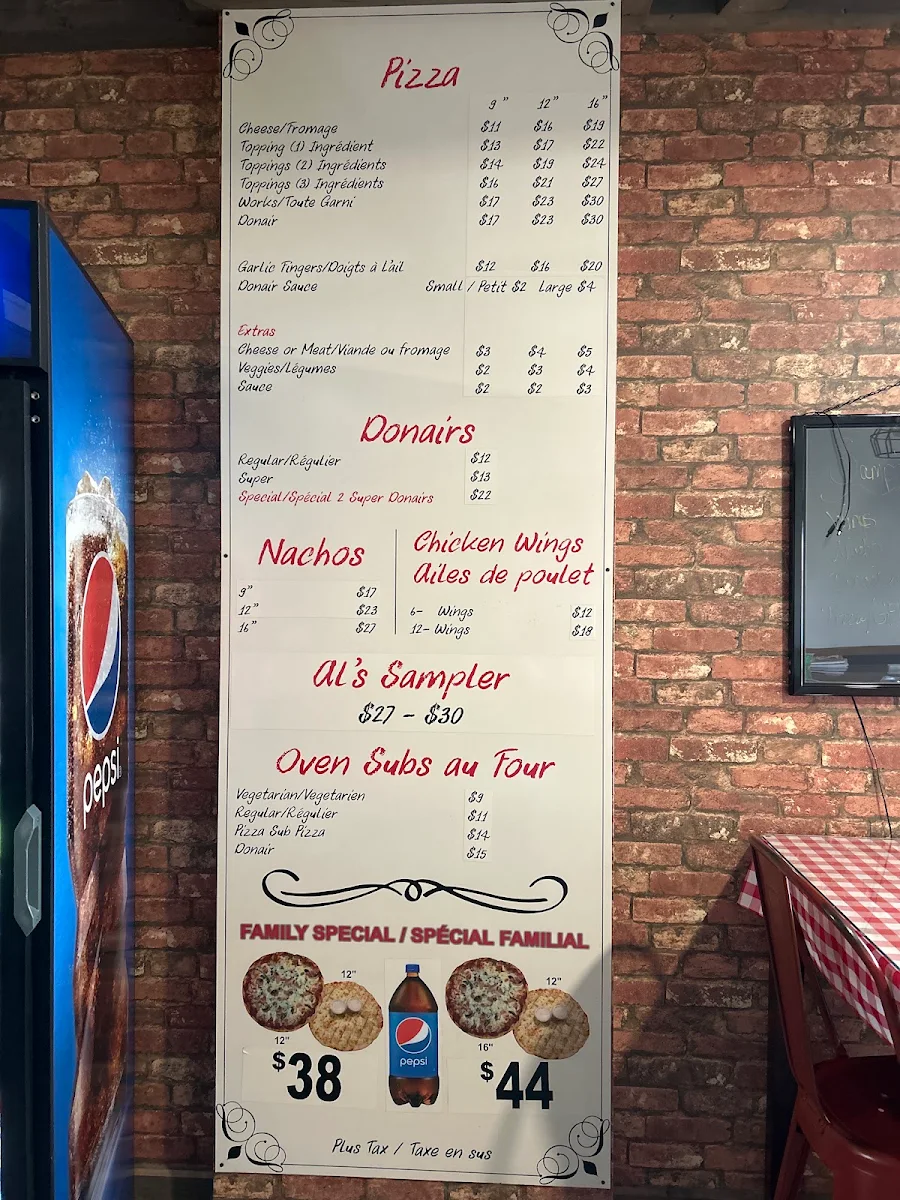 Pizza
9" 12" 16"
Cheese/Fromage $11 $16 $19
Topping (1) Ingrédient $13 $17 $22
Toppings (2) Ingrédients $14 $19 $24
Toppings (3) Ingrédients $16 $21 $27
Works/Toute Garni $17 $23 $30
Donair $17 $23 $30
Garlic Fingers/Doigts à L'ail $12 $16 $20
Donair Sauce Small / Petit $2 Large $4
Extras
Cheese or Meat/Viande ou fromage $3 $4 $5
Veggies/Légumes $2 $3 $4
Sauce $2 $2 $3
Donairs
Regular/Régulier $12
Super $13
Special/Spécial 2 Super Donairs $22
Nachos
9" $17
12" $23
16" $27
Chicken Wings
Ailes de poulet
6- Wings $12
12- Wings $18
Al's Sampler
$27 - $30
Oven Subs au Four
Vegetarian/Vegetarien $9
Regular/Régulier $11
Pizza Sub Pizza $14
Donair $15
FAMILY SPECIAL / SPÉCIAL FAMILIAL
12" 12"
$38
pepsi
16" 12"
$44
Plus Tax / Taxe en sus
pepsi